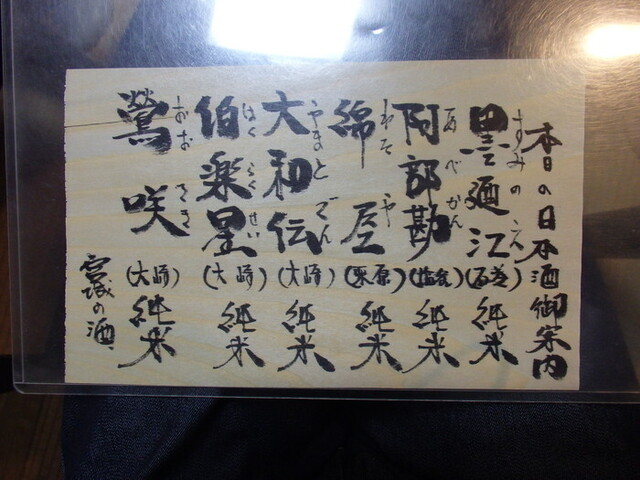 本日の日本酒御案内
墨廼江(石巻)純米
すみのえ
阿部勘(塩釜)純米
あべかん
綿屋(栗原)純米
わたや
大和伝(大崎)純米
やまとでん
伯楽星(大崎)純米
はくらくせい
鶯咲(大崎)純米
おおさき
宮城の酒